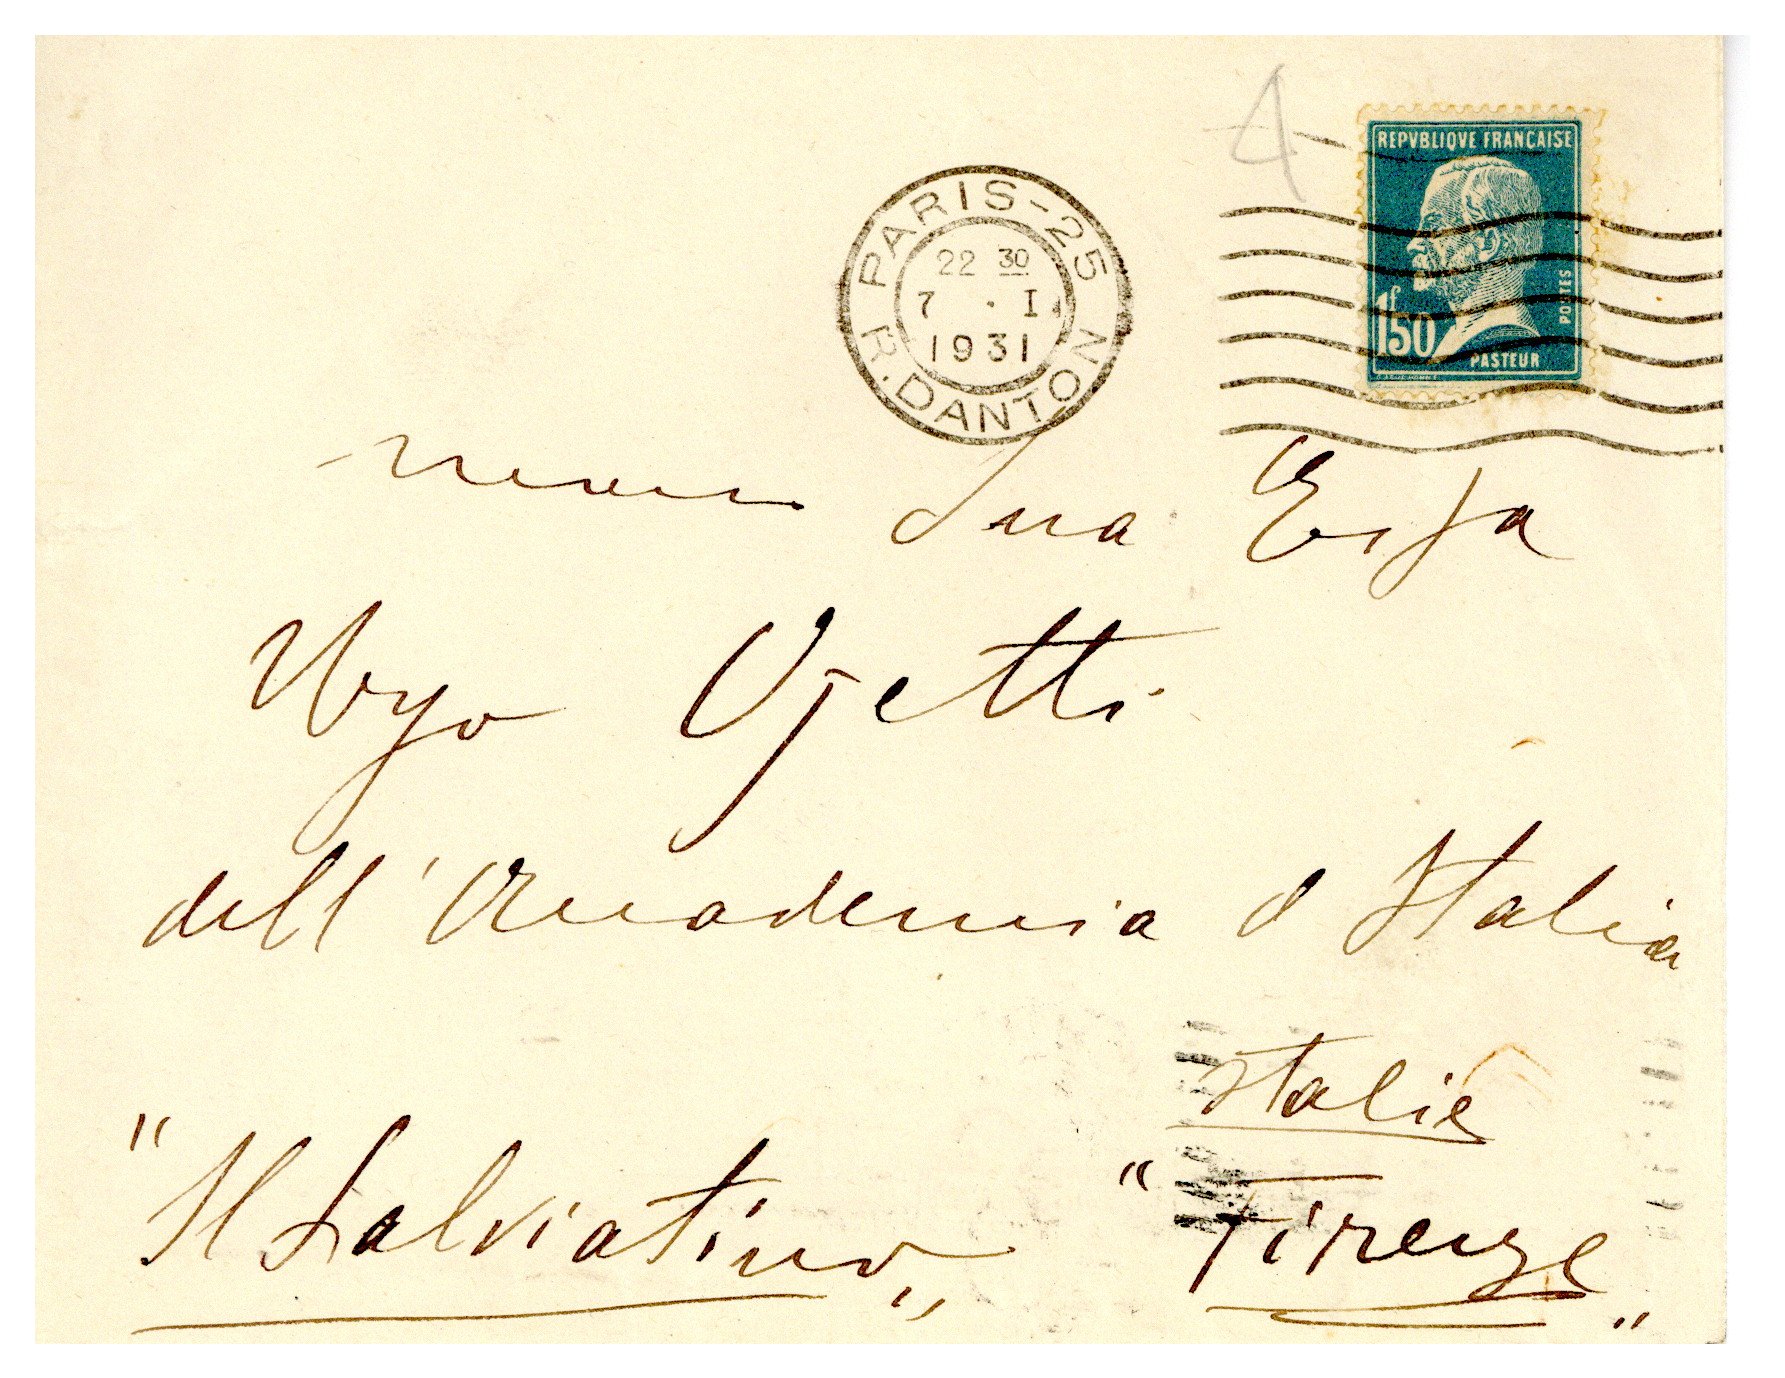 4
REPVBLIQVE FRANCAISE
1f50
POSTES
PASTEUR
PARIS-25
22 30
7 . I.
1931
R. DANTON
Sua
Ugo Ojetti
dell'Accademia d Italia
Italie
"Il Salviatino„ "Firenze„